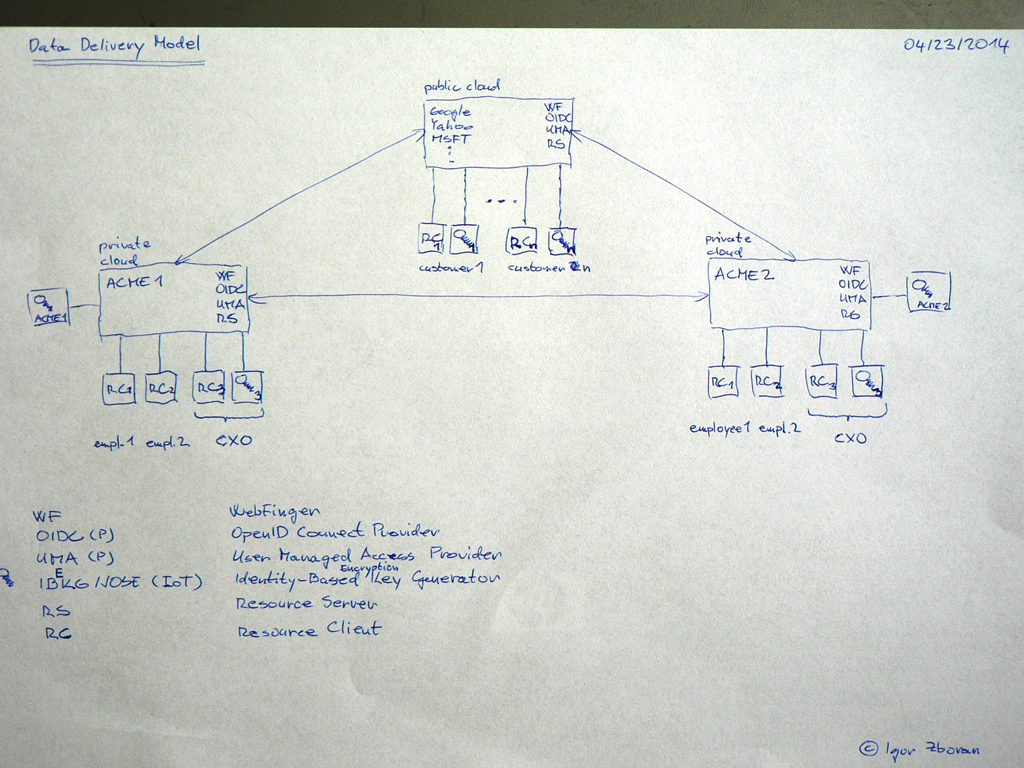 Data Delivery Model
04/23/2014
public cloud
Google
Yahoo
MSFT
WF
OIDC
UMA
RS
RC1
RCn
customer 1
customer n
private
cloud
ACME 1
WF
OIDC
UMA
RS
ACME1
RC1
RC2
RC3
3
empl.1 empl.2 CXO
private
cloud
ACME 2
WF
OIDC
UMA
RS
ACME2
RC1
RC2
RC3
3
employee1 empl.2 CXO
WF WebFinger
OIDC (P) OpenID Connect Provider
UMA (P) User Managed Access Provider
IBEKG NOSE (IoT) Identity-Based Encryption Key Generator
RS Resource Server
RC Resource Client
© Igor Zboran